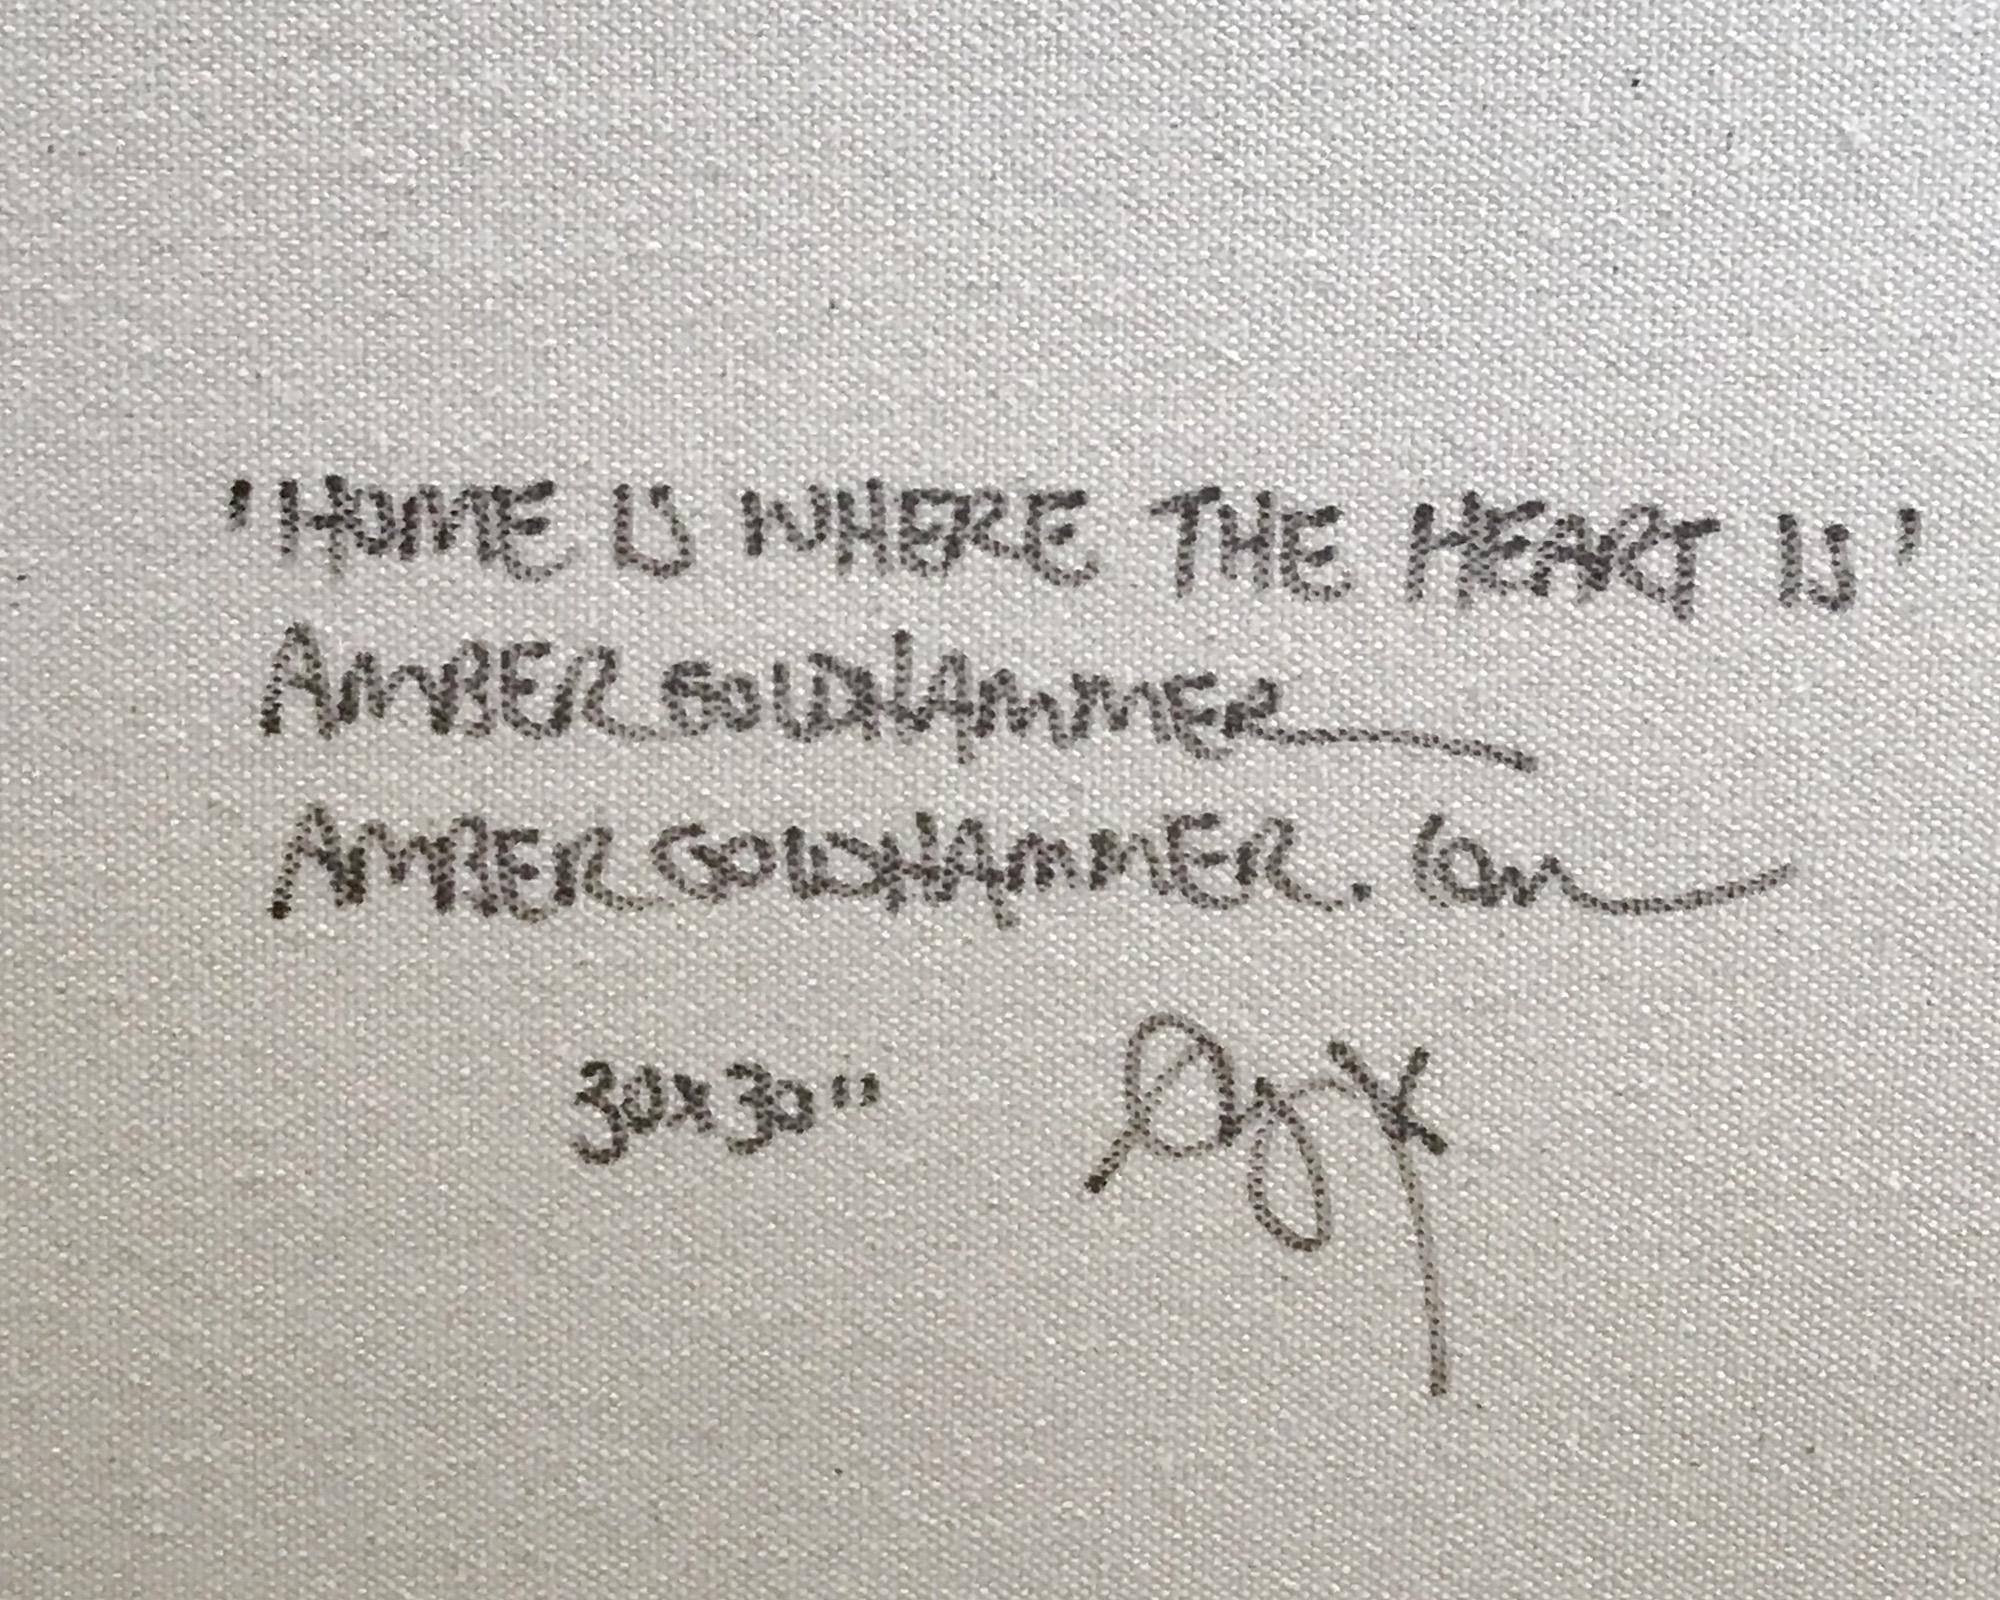 'HOME IS WHERE THE HEART IS'
AMBER GOLDHAMMER
AMBERGOLDHAMMER.com
30x30"